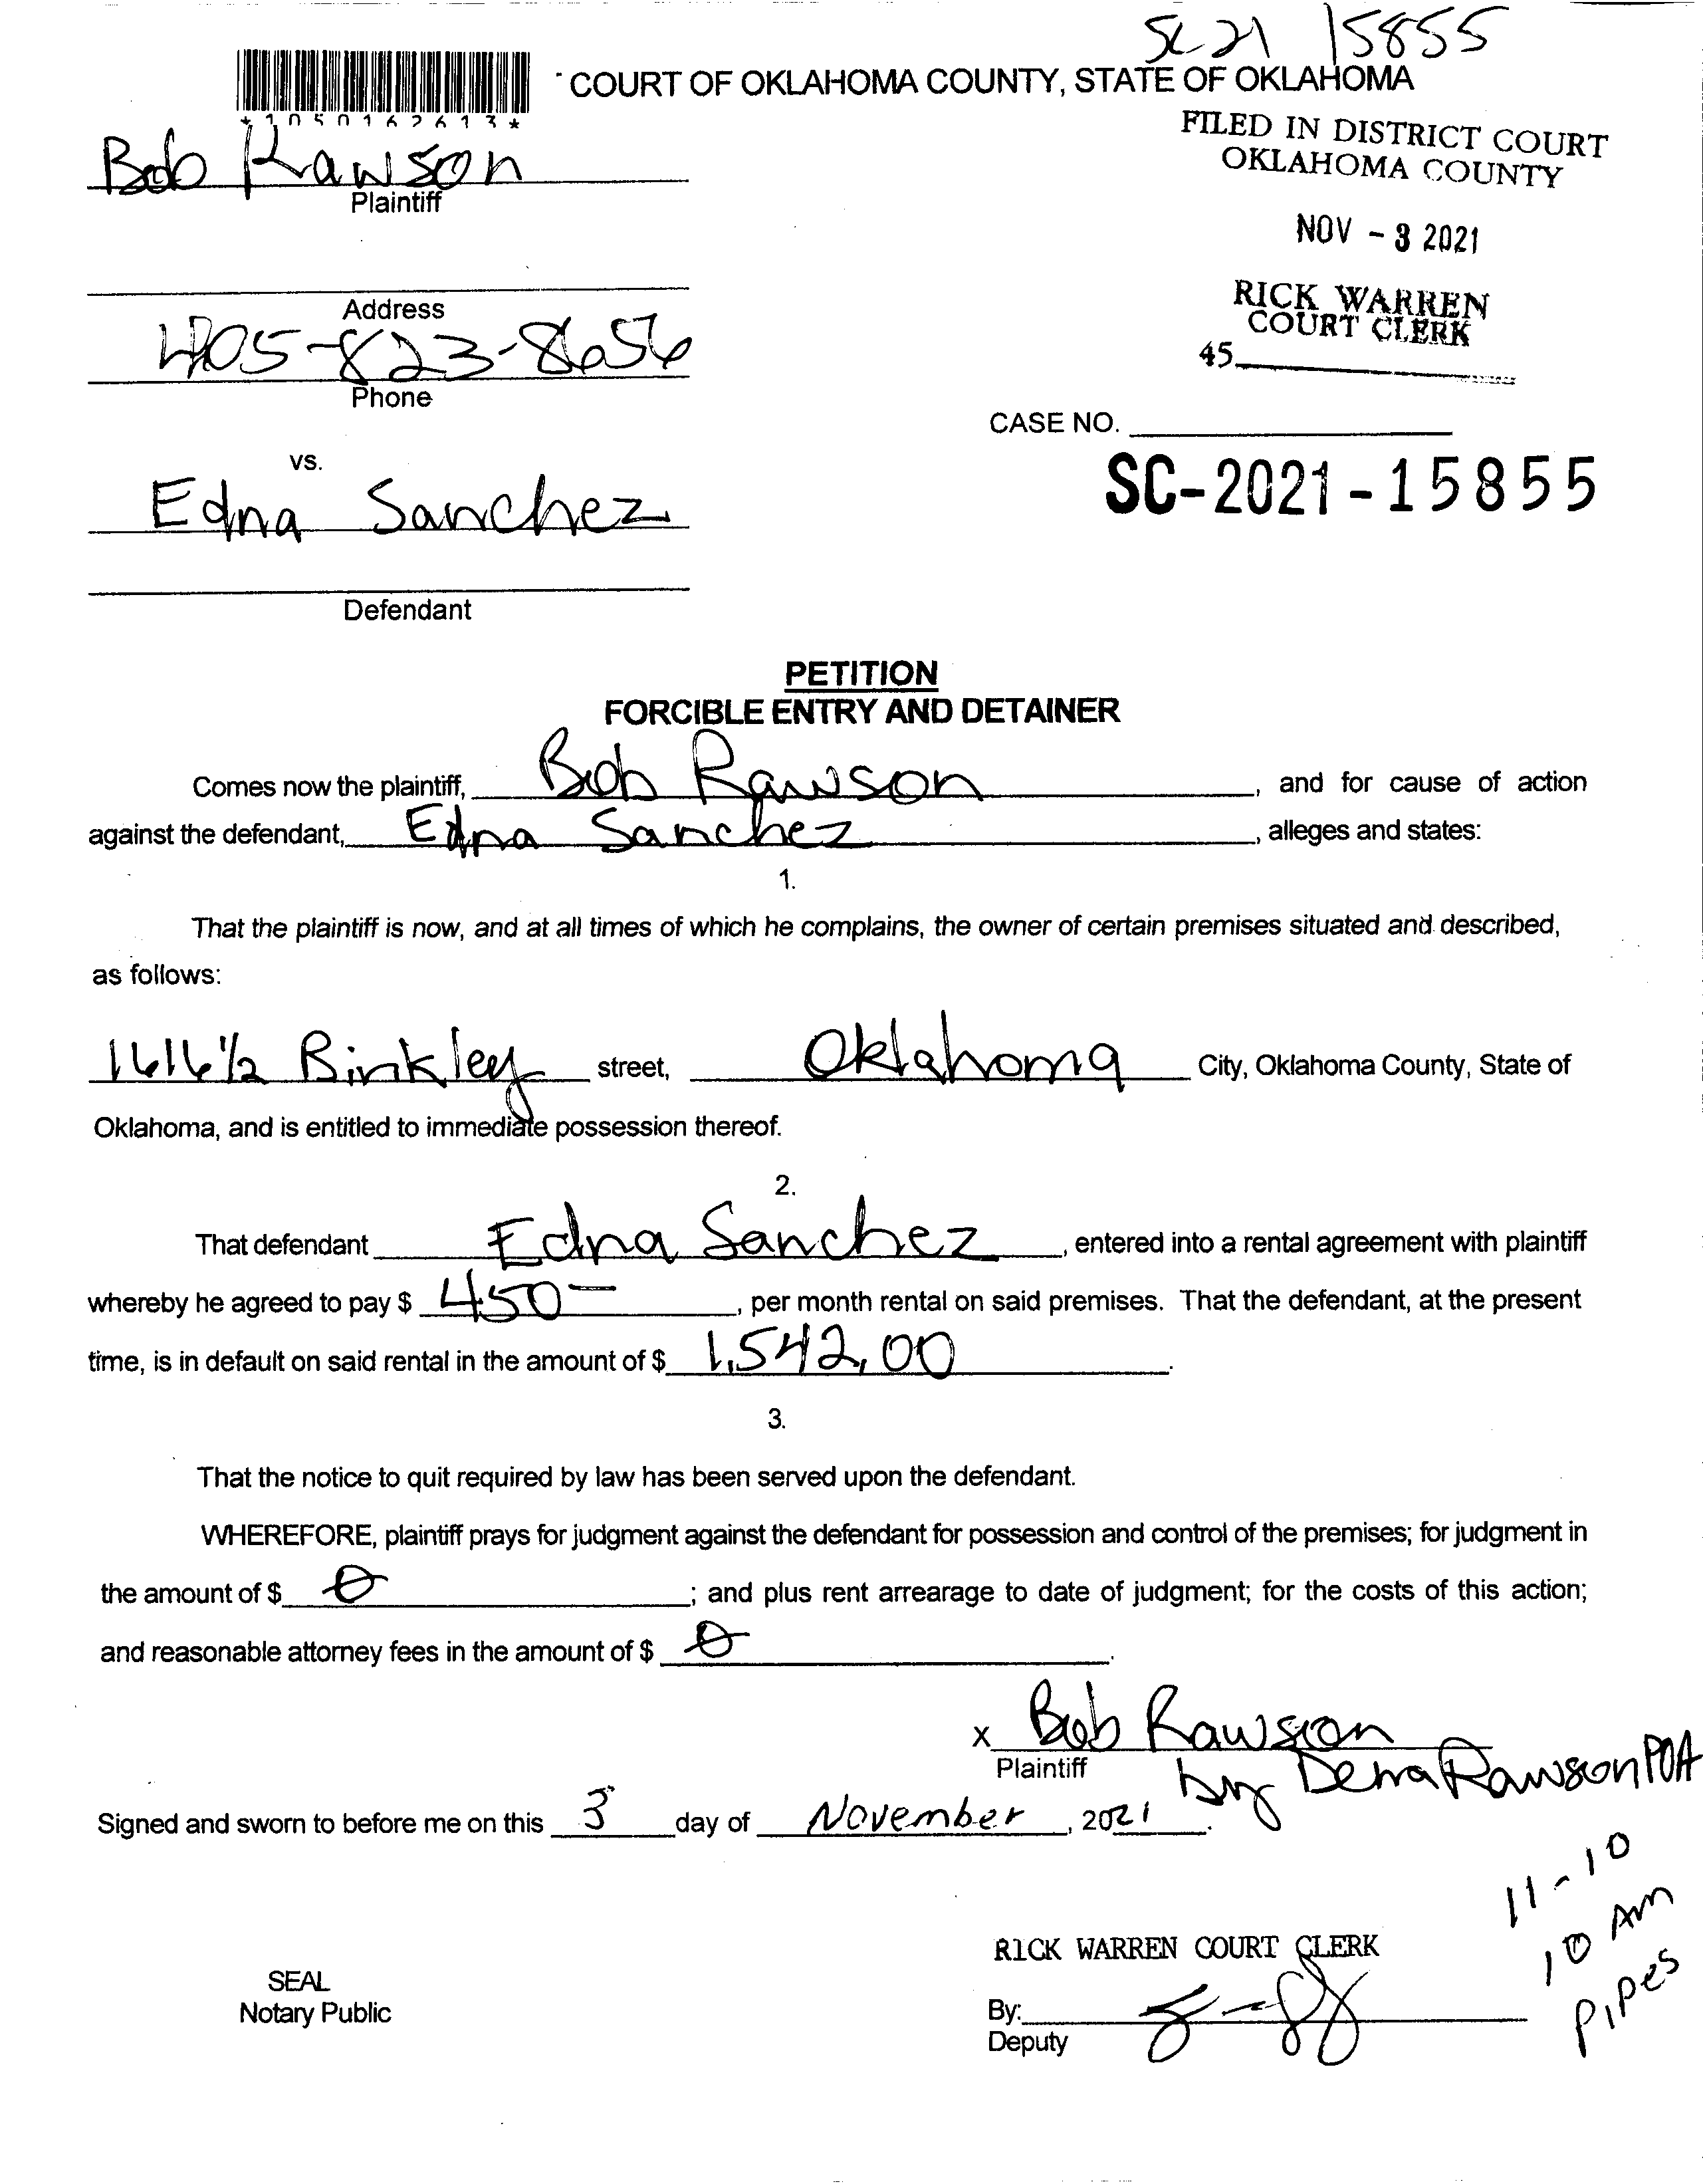 SC 21 15855
COURT OF OKLAHOMA COUNTY, STATE OF OKLAHOMA
*1050162613*
FILED IN DISTRICT COURT
OKLAHOMA COUNTY
Bob Rawson
Plaintiff
NOV - 3 2021
Address
RICK WARREN
COURT CLERK
45
405-823-8656
Phone
CASE NO.
vs.
SC-2021-15855
Edna Sanchez
Defendant
PETITION
FORCIBLE ENTRY AND DETAINER
Comes now the plaintiff, Bob Rawson, and for cause of action
against the defendant, Edna Sanchez, alleges and states:
1.
That the plaintiff is now, and at all times of which he complains, the owner of certain premises situated and described,
as follows:
1616 1/2 Binkley street, Oklahoma City, Oklahoma County, State of
Oklahoma, and is entitled to immediate possession thereof.
2.
That defendant Edna Sanchez, entered into a rental agreement with plaintiff
whereby he agreed to pay $ 450—, per month rental on said premises. That the defendant, at the present
time, is in default on said rental in the amount of $ 1,542.00.
3.
That the notice to quit required by law has been served upon the defendant.
WHEREFORE, plaintiff prays for judgment against the defendant for possession and control of the premises; for judgment in
the amount of $ 0; and plus rent arrearage to date of judgment; for the costs of this action;
and reasonable attorney fees in the amount of $ 0.
x Bob Rawson
Plaintiff by Rawson POA
Signed and sworn to before me on this 3 day of November, 2021.
11-10
10 Am
Pipes
RICK WARREN COURT CLERK
SEAL
Notary Public
By:
Deputy